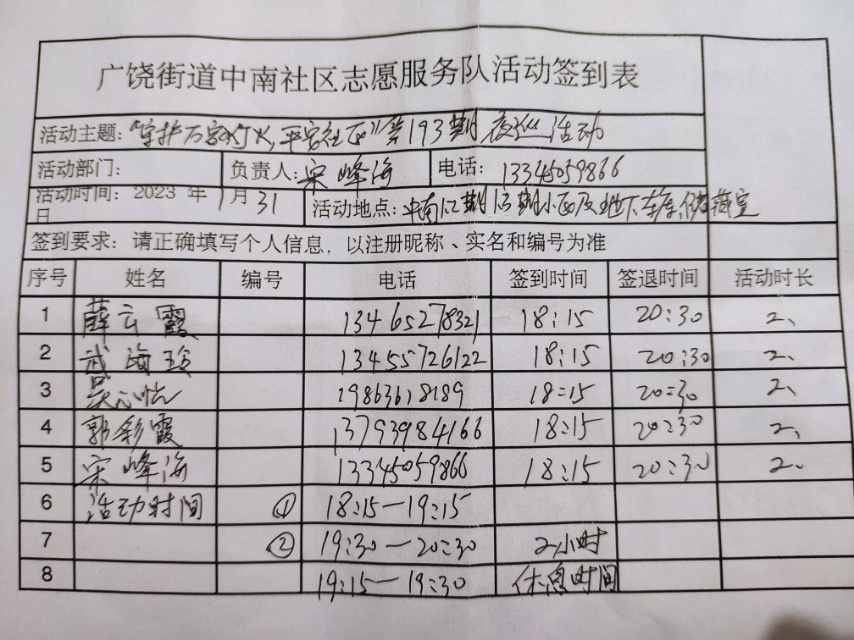 广饶街道中南社区志愿服务队活动签到表
活动主题:“守护万家灯火,平安社区”第193期夜巡活动
活动部门: 负责人:宋峰海 电话: 13345059866
活动时间: 2023 年1月31日 活动地点:中南 期 期小区及地下车库储藏室
签到要求: 请正确填写个人信息, 以注册昵称、实名和编号为准
序号 姓名 编号 电话 签到时间 签退时间 活动时长
1 薛云霞 13465278321 18:15 20:30 2、
2 武海 13455726122 18:15 20:30 2、
3 吴心怡 19863618189 18:15 20:30 2、
4 郭彩霞 13793984166 18:15 20:30 2、
5 宋峰海 13345059866 18:15 20:30 2、
6 活动时间 ① 18:15—19:15
7 ② 19:30—20:30 2小时
8 19:15—19:30 休息时间